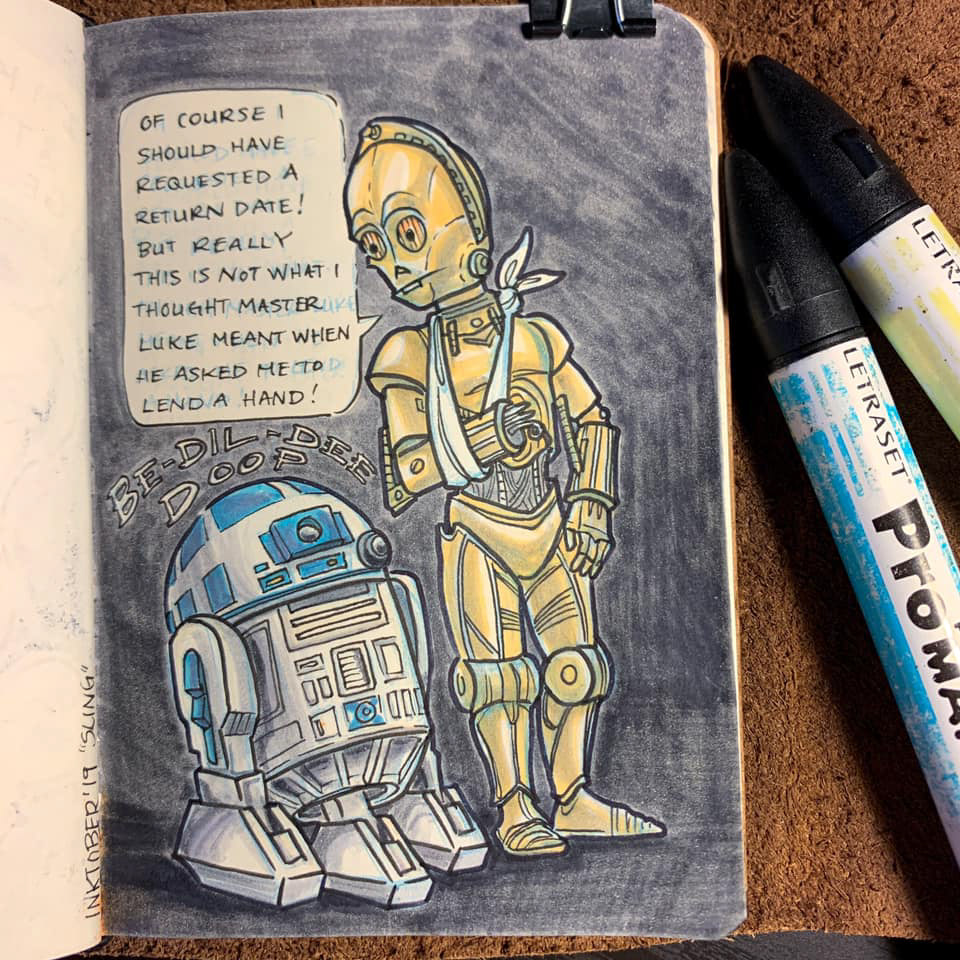 OF COURSE I
SHOULD HAVE
REQUESTED A
RETURN DATE!
BUT REALLY
THIS IS NOT WHAT I
THOUGHT MASTER
LUKE MEANT WHEN
HE ASKED ME TO
LEND A HAND!
BE-DIL-DEE
DOOP
INKTOBER'19 "SLING"
LETRASET
ProMa
LETRA